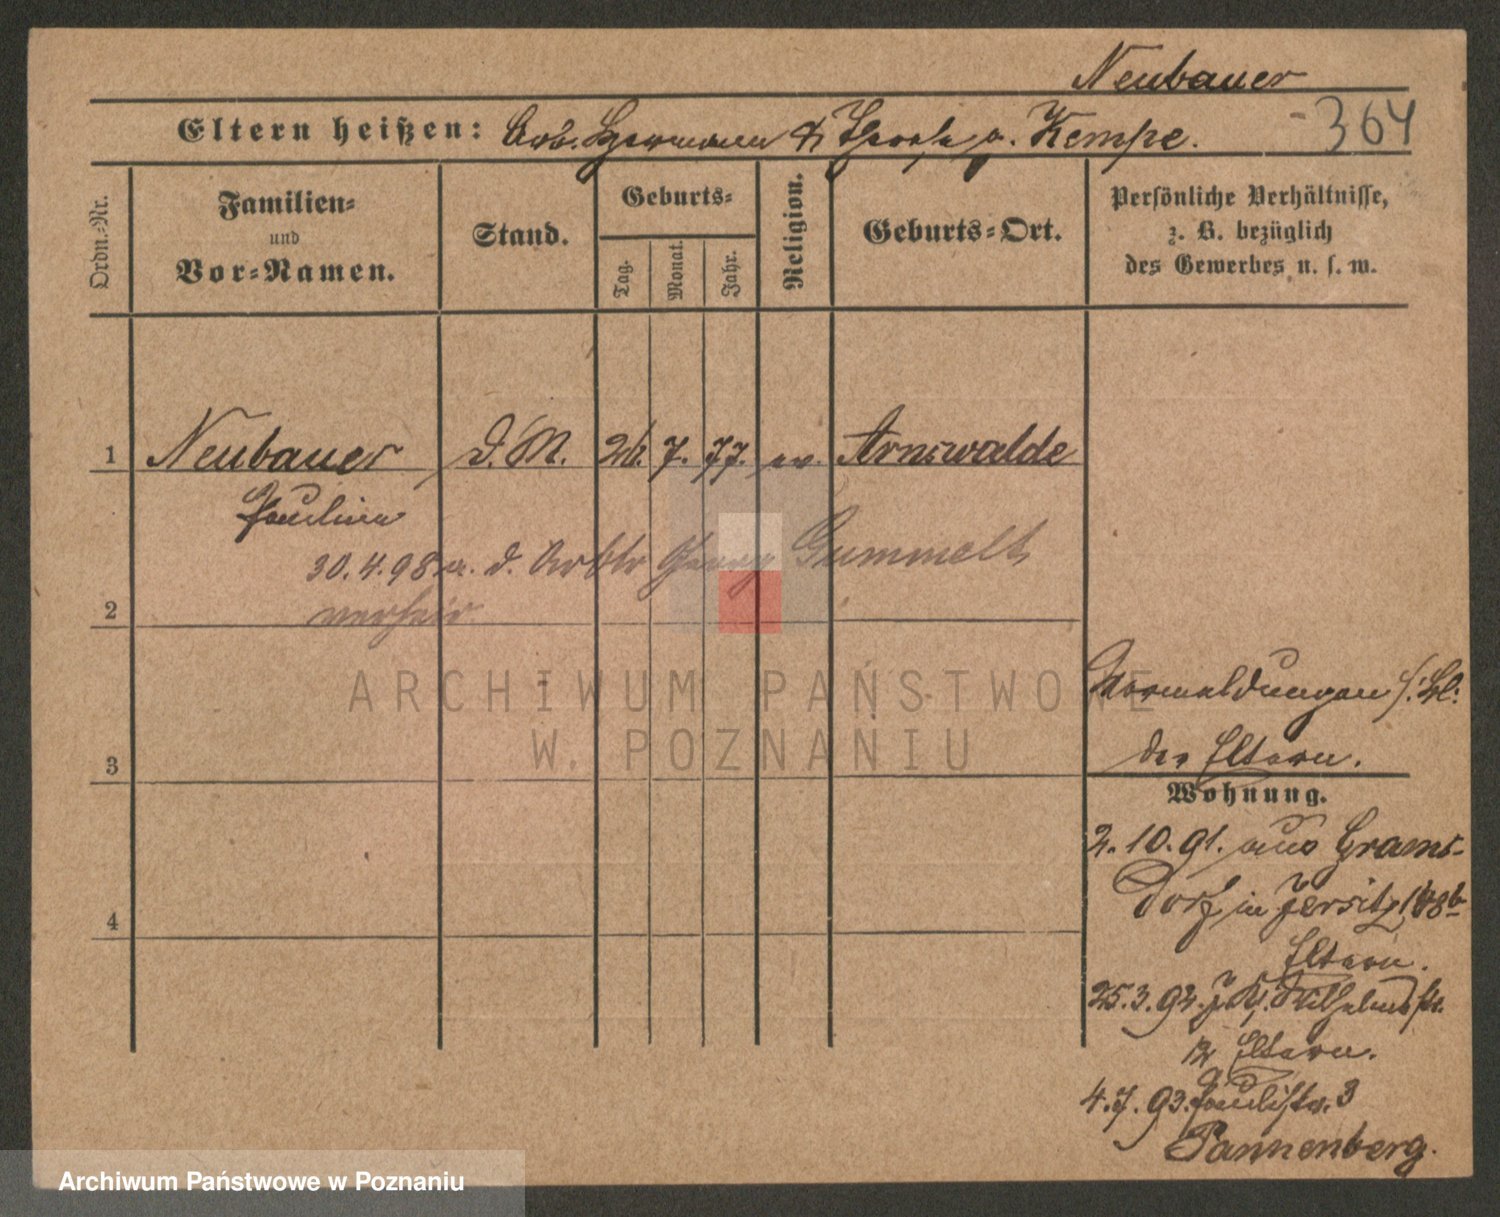 Neubauer
Eltern heißen: Arb. Hermann & g. Kempe.
364
Ordn.-Nr.
Familien-
und
Vor-Namen.
Stand.
Geburts-
Tag.
Monat.
Jahr.
Religion.
Geburts-Ort.
Persönliche Verhältnisse,
z. B. bezüglich
des Gewerbes u. s. w.
1 Neubauer d. M. 26. 7. 77. ev. Arnswalde
Pauline
30.4.98 m. d. Arbtr Georg Gummelt
verheir.
2
3
4
Vormeldungen s. Bl.
der Eltern.
Wohnung.
2.10.91. aus Grams-
dorf in Jersitz
Eltern.
25.3.92. J. Wilhelmstr.
12 Eltern.
4.7.93. Paulistr. 3
Pannenberg.
ARCHIWUM PAŃSTWOWE
W. POZNANIU
Archiwum Państwowe w Poznaniu